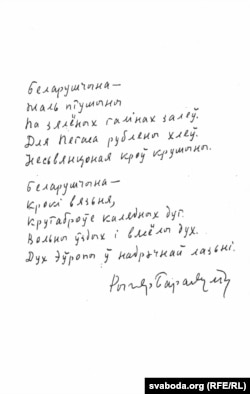 Беларушчына—
Жаль птушыны
Па зялёных галінах залеў.
Для Пегаса рублены хлеў.
Несьвянцоная кроў крушыны.
Беларушчына—
Крокі вязьня,
Крутаброўе калядных дуг.
Вольны ўздых і вясёлы дух.
Дух Эўропы ў набрэчнай лазьні.
Рыгор Барадулін
svaboda.org (RFE/RL)